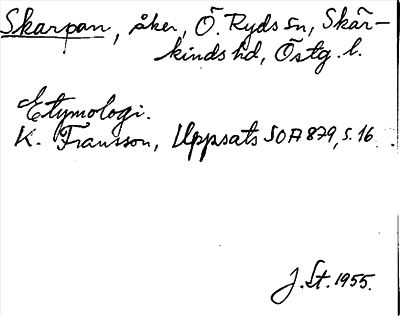 Skarpan, åker, Ö. Ryds sn, Skär-
kinds hd, Östg. l.
Etymologi.
K. Fransson, Uppsats SOA 879, s. 16.
J. St. 1955.